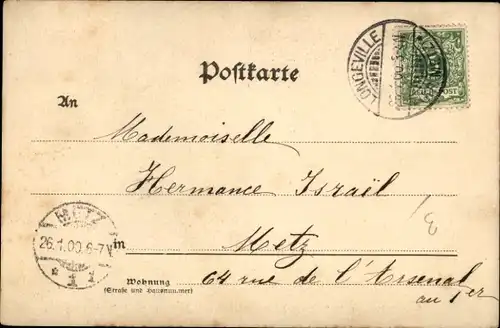 LONGEVILLE
Postkarte
An
Mademoiselle
Hermance Israël
METZ
26.1.00.6-7V.
in Metz
Wohnung
(Straße und Hausnummer)
64 rue de l'Arsenal
au 1er